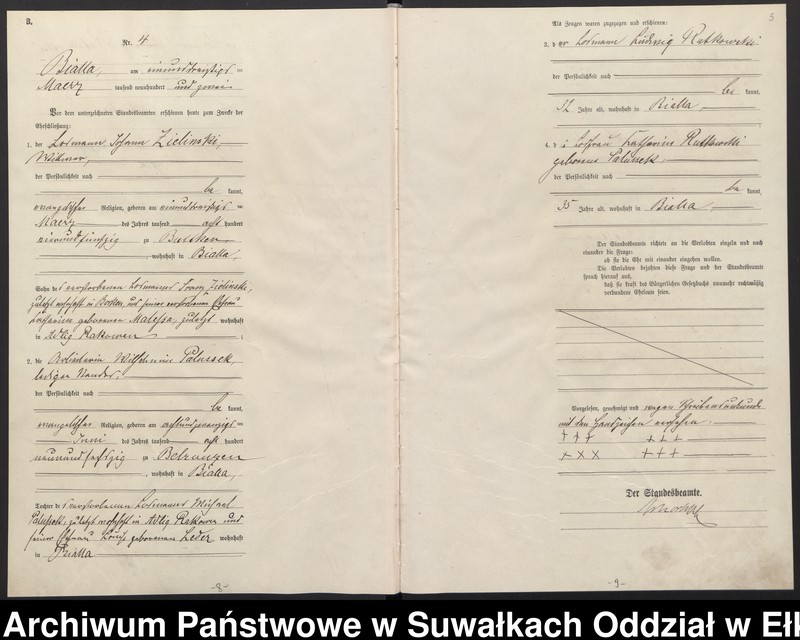 B.
Nr. 4
Bialla, am einunddreißigsten
Maerz tausend neunhundert und zwei
Vor dem unterzeichneten Standesbeamten erschienen heute zum Zwecke der
Eheschließung:
1. der Losmann Johann Zielinski,
Wittwer,
der Persönlichkeit nach
be kannt,
evangelischer Religion, geboren am einunddreißigsten
Maerz des Jahres tausend acht hundert
vierundfünfzig zu
, wohnhaft in Bialla,
Sohn des verstorbenen Losmannes Franz Zielinski,
zuletzt wohnhaft in und seiner verstorbenen Ehefrau
geborenen Malessa, zuletzt wohnhaft
in Adlig Rakowen ;
2. die Arbeiterin Wilhelmine Palussek,
ledigen Standes,
der Persönlichkeit nach
be kannt,
evangelischer Religion, geboren am achtundzwanzigsten
Juni des Jahres tausend acht hundert
neunundsechzig zu
, wohnhaft in Bialla,
Tochter des verstorbenen Losmannes Michael
Palussek, zuletzt wohnhaft in Adlig Rakowen und
seiner Ehefrau Louise geborenen Leder wohnhaft
in Bialla
-8-
5
Als Zeugen waren zugezogen und erschienen:
3. der Losmann Ludwig Rutkowski
der Persönlichkeit nach
be kannt,
52 Jahre alt, wohnhaft in Bialla
4. die Losfrau Katharine Rutkowski
geborene Palussek,
der Persönlichkeit nach
be kannt,
55 Jahre alt, wohnhaft in Bialla
Der Standesbeamte richtete an die Verlobten einzeln und nach
einander die Frage:
ob sie die Ehe mit einander eingehen wollen.
Die Verlobten bejahten diese Frage und der Standesbeamte
sprach hierauf aus,
daß sie kraft des Bürgerlichen Gesetzbuchs nunmehr rechtmäßig
verbundene Eheleute seien.
Vorgelesen, genehmigt und wegen Schreibensunkunde
mit den Handzeichen versehen.
+ + + + + +
× × × + + +
Der Standesbeamte.
-9-
Archiwum Państwowe w Suwałkach Oddział w Eł